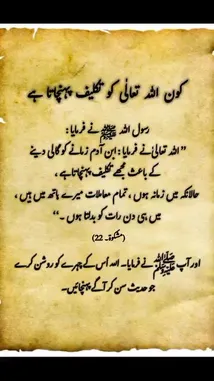 کون اللہ تعالٰی کو تکلیف پہنچاتا ہے
رسول اللہ ﷺ نے فرمایا :
”اللہ تعالیٰ نے فرمایا : ابن آدم زمانے کو گالی دینے
کے باعث مجھے تکلیف پہنچاتا ہے ،
حالانکہ میں زمانہ ہوں ، تمام معاملات میرے ہاتھ میں ہیں ،
میں ہی دن رات کو بدلتا ہوں ۔“
(مشکوٰۃ۔ 22)
اور آپ ﷺ نے فرمایا۔ اللہ اُس کے چہرے کو روشن کرے
جو حدیث سن کر آگے پہنچائیں۔